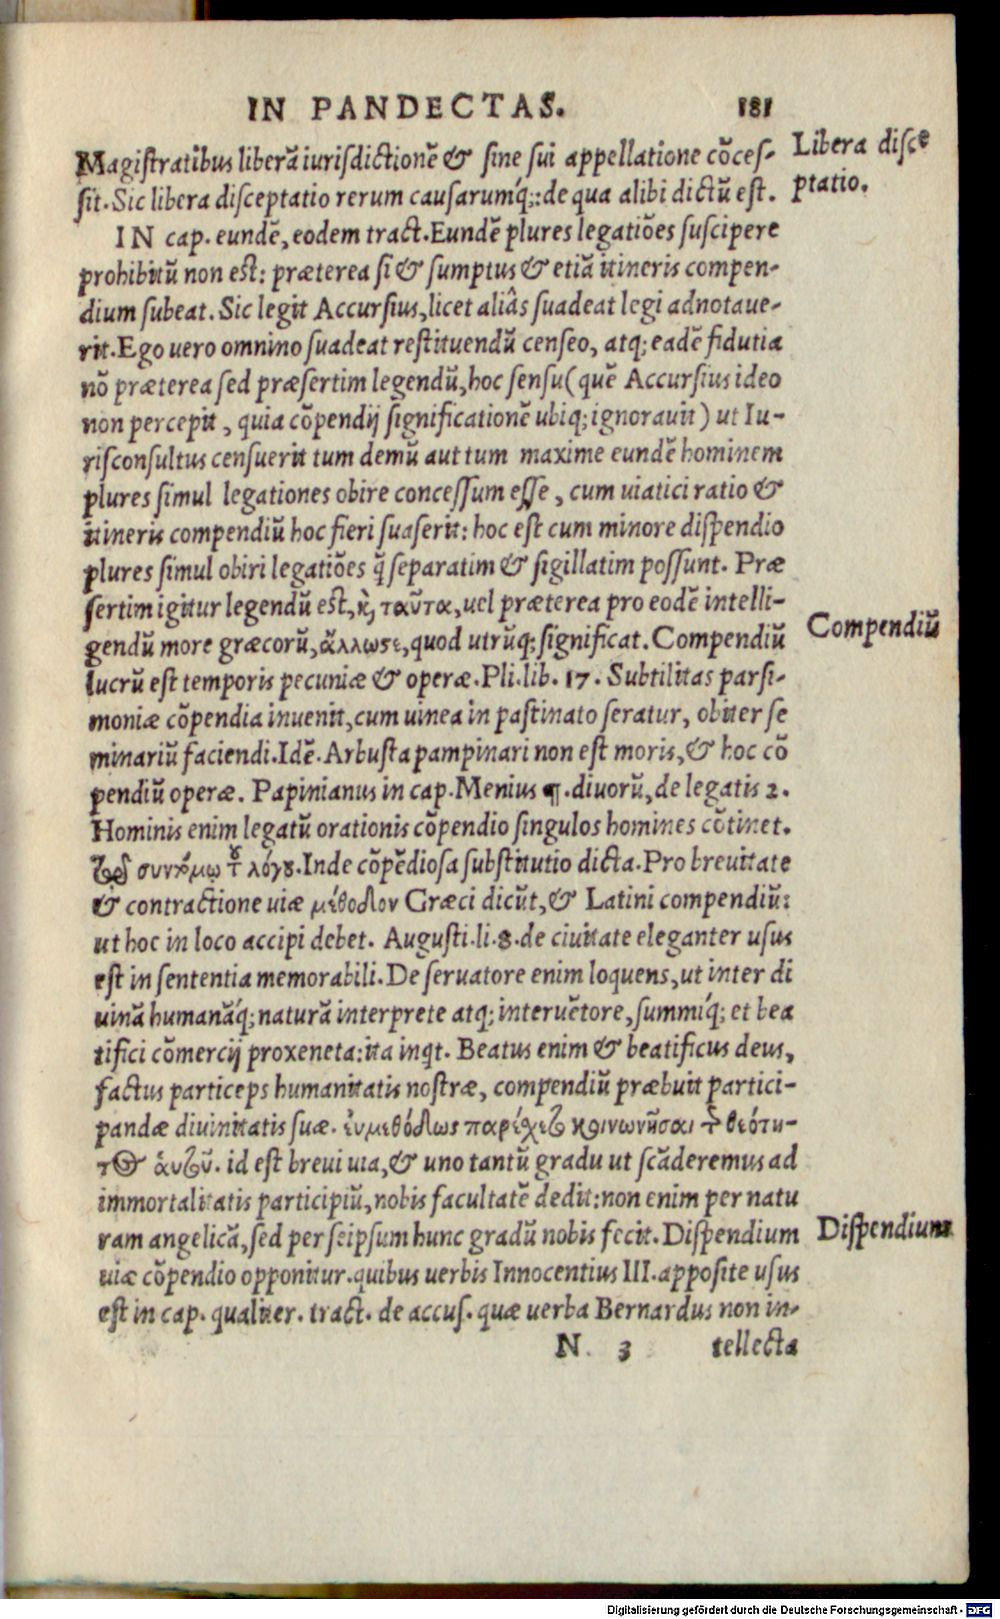 IN PANDECTAS. 181
Magiſtratibus liberā iurisdictionē & ſine ſui appellatione cōceſ-
ſit. Sic libera diſceptatio rerum cauſarumq́;: de qua alibi dictū eſt.
Libera diſce
ptatio.
IN cap. eundē, eodem tract. Eundē plures legatiōes ſuſcipere
prohibitū non eſt: præterea ſi & ſumptus & etiā itineris compen-
dium ſubeat. Sic legit Accurſius, licet aliâs ſuadeat legi adnotaue-
rit. Ego uero omnino ſuadeat reſtituendū cenſeo, atq; eadē fidutia
nō præterea ſed præſertim legendū, hoc ſenſu (quē Accurſius ideo
non percepit, quia cōpendij ſignificationē ubiq; ignorauit) ut Iu-
riſconſultus cenſuerit tum demū aut tum maxime eundē hominem
plures ſimul legationes obire conceſſum eſſe, cum uiatici ratio &
itineris compendiū hoc fieri ſuaſerit: hoc eſt cum minore diſpendio
plures ſimul obiri legatiōes q̃ ſeparatim & ſigillatim poſſunt. Præ
ſertim igitur legendū eſt, κ̀ ταῦτα, uel præterea pro eodē intelli-
gendū more græcorū, ἄλλωσε, quod utrūq; ſignificat. Compendiū
Compendiū
lucrū eſt temporis pecuniæ & operæ. Pli. lib. 17. Subtilitas parſi-
moniæ cōpendia inuenit, cum uinea in paſtinato ſeratur, obiter ſe
minariū faciendi. Idē. Arbuſta pampinari non eſt moris, & hoc cō
pendiū operæ. Papinianus in cap. Menius ¶. diuorū, de legatis 2.
Hominis enim legatū orationis cōpendio ſingulos homines cōtinet.
συντόμῳ τοῦ λόγου. Inde cōpēdioſa ſubſtitutio dicta. Pro breuitate
& contractione uiæ μέθοδον Græci dicūt, & Latini compendiū:
ut hoc in loco accipi debet. Auguſti. li. 8. de ciuitate eleganter uſus
eſt in ſententia memorabili. De ſeruatore enim loquens, ut inter di
uinā humanāq́; naturā interprete atq; interuētore, ſummiq́; et bea
tifici cōmercij proxeneta: ita inqt. Beatus enim & beatificus deus,
factus particeps humanitatis noſtræ, compendiū præbuit partici-
pandæ diuinitatis ſuæ. ἐυμεθόδως παρέχετο κοινωνῆσαι τ̃ θεότη-
τος ἁυτοῦ. id eſt breui uia, & uno tantū gradu ut ſcāderemus ad
immortalitatis participiū, nobis facultatē dedit: non enim per natu
ram angelicā, ſed per ſeipſum hunc gradū nobis fecit. Diſpendium
Diſpendium
uiæ cōpendio opponitur. quibus uerbis Innocentius III. appoſite uſus
eſt in cap. qualiter. tract. de accuſ. quæ uerba Bernardus non in-
N 3 tellecta
Digitalisierung gefördert durch die Deutsche Forschungsgemeinschaft - DFG